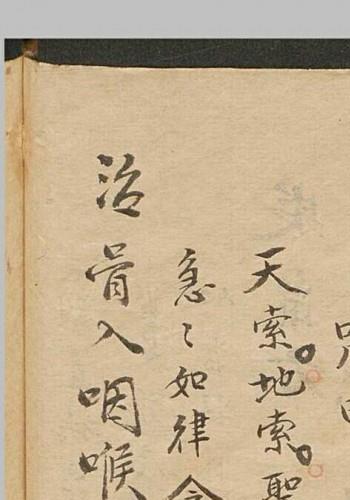 天索。地索。聖
急〻如律令
治骨入咽喉